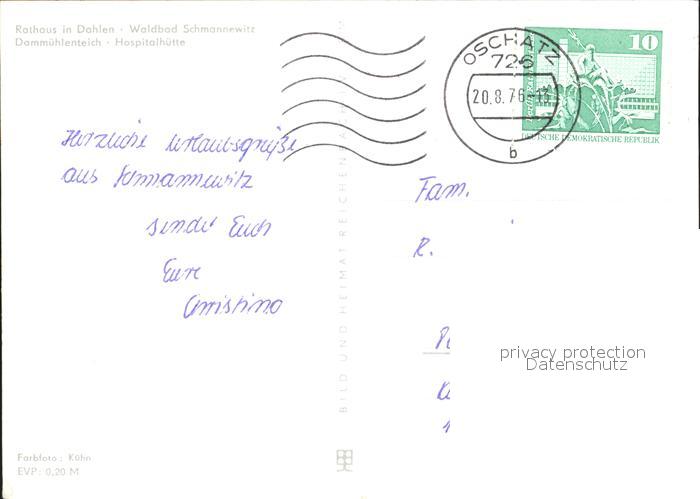 Rathaus in Dahlen · Waldbad Schmannewitz
Dammühlenteich · Hospitalhütte
OSCHATZ
726
20.8.76
b
10
DEUTSCHE DEMOKRATISCHE REPUBLIK
Herzliche Urlaubsgrüße
aus Schmannewitz
sendet Euch
Eure
Christina
BILD UND HEIMAT REICHENBACH
Fam.
R.
privacy protection
Datenschutz
Farbfoto: Kühn
EVP: 0,20 M